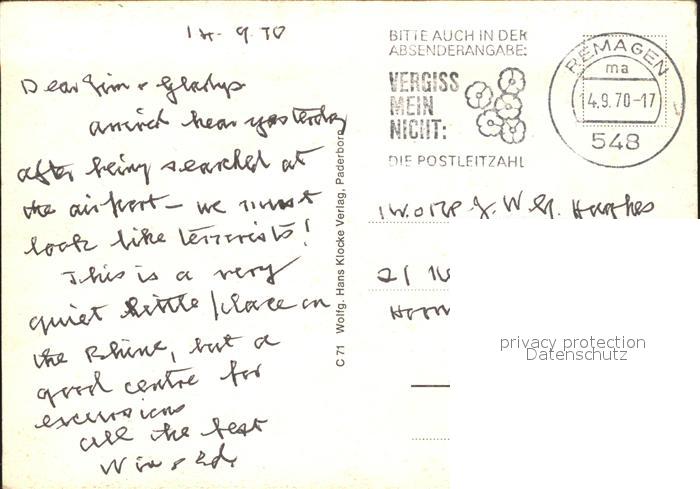 14.9.70
Dear Jim & Gladys
arrived here yesterday
after being searched at
the airport — we must
look like terrorists!
This is a very
quiet little place on
the Rhine, but a
good centre for
excursions
all the best
Win & Ed.
C 71 Wolfg. Hans Klocke Verlag, Paderborn
BITTE AUCH IN DER
ABSENDERANGABE:
VERGISS
MEIN
NICHT:
DIE POSTLEITZAHL
REMAGEN
ma
14.9.70-17
548
J. W. G. Hughes
21
privacy protection
Datenschutz